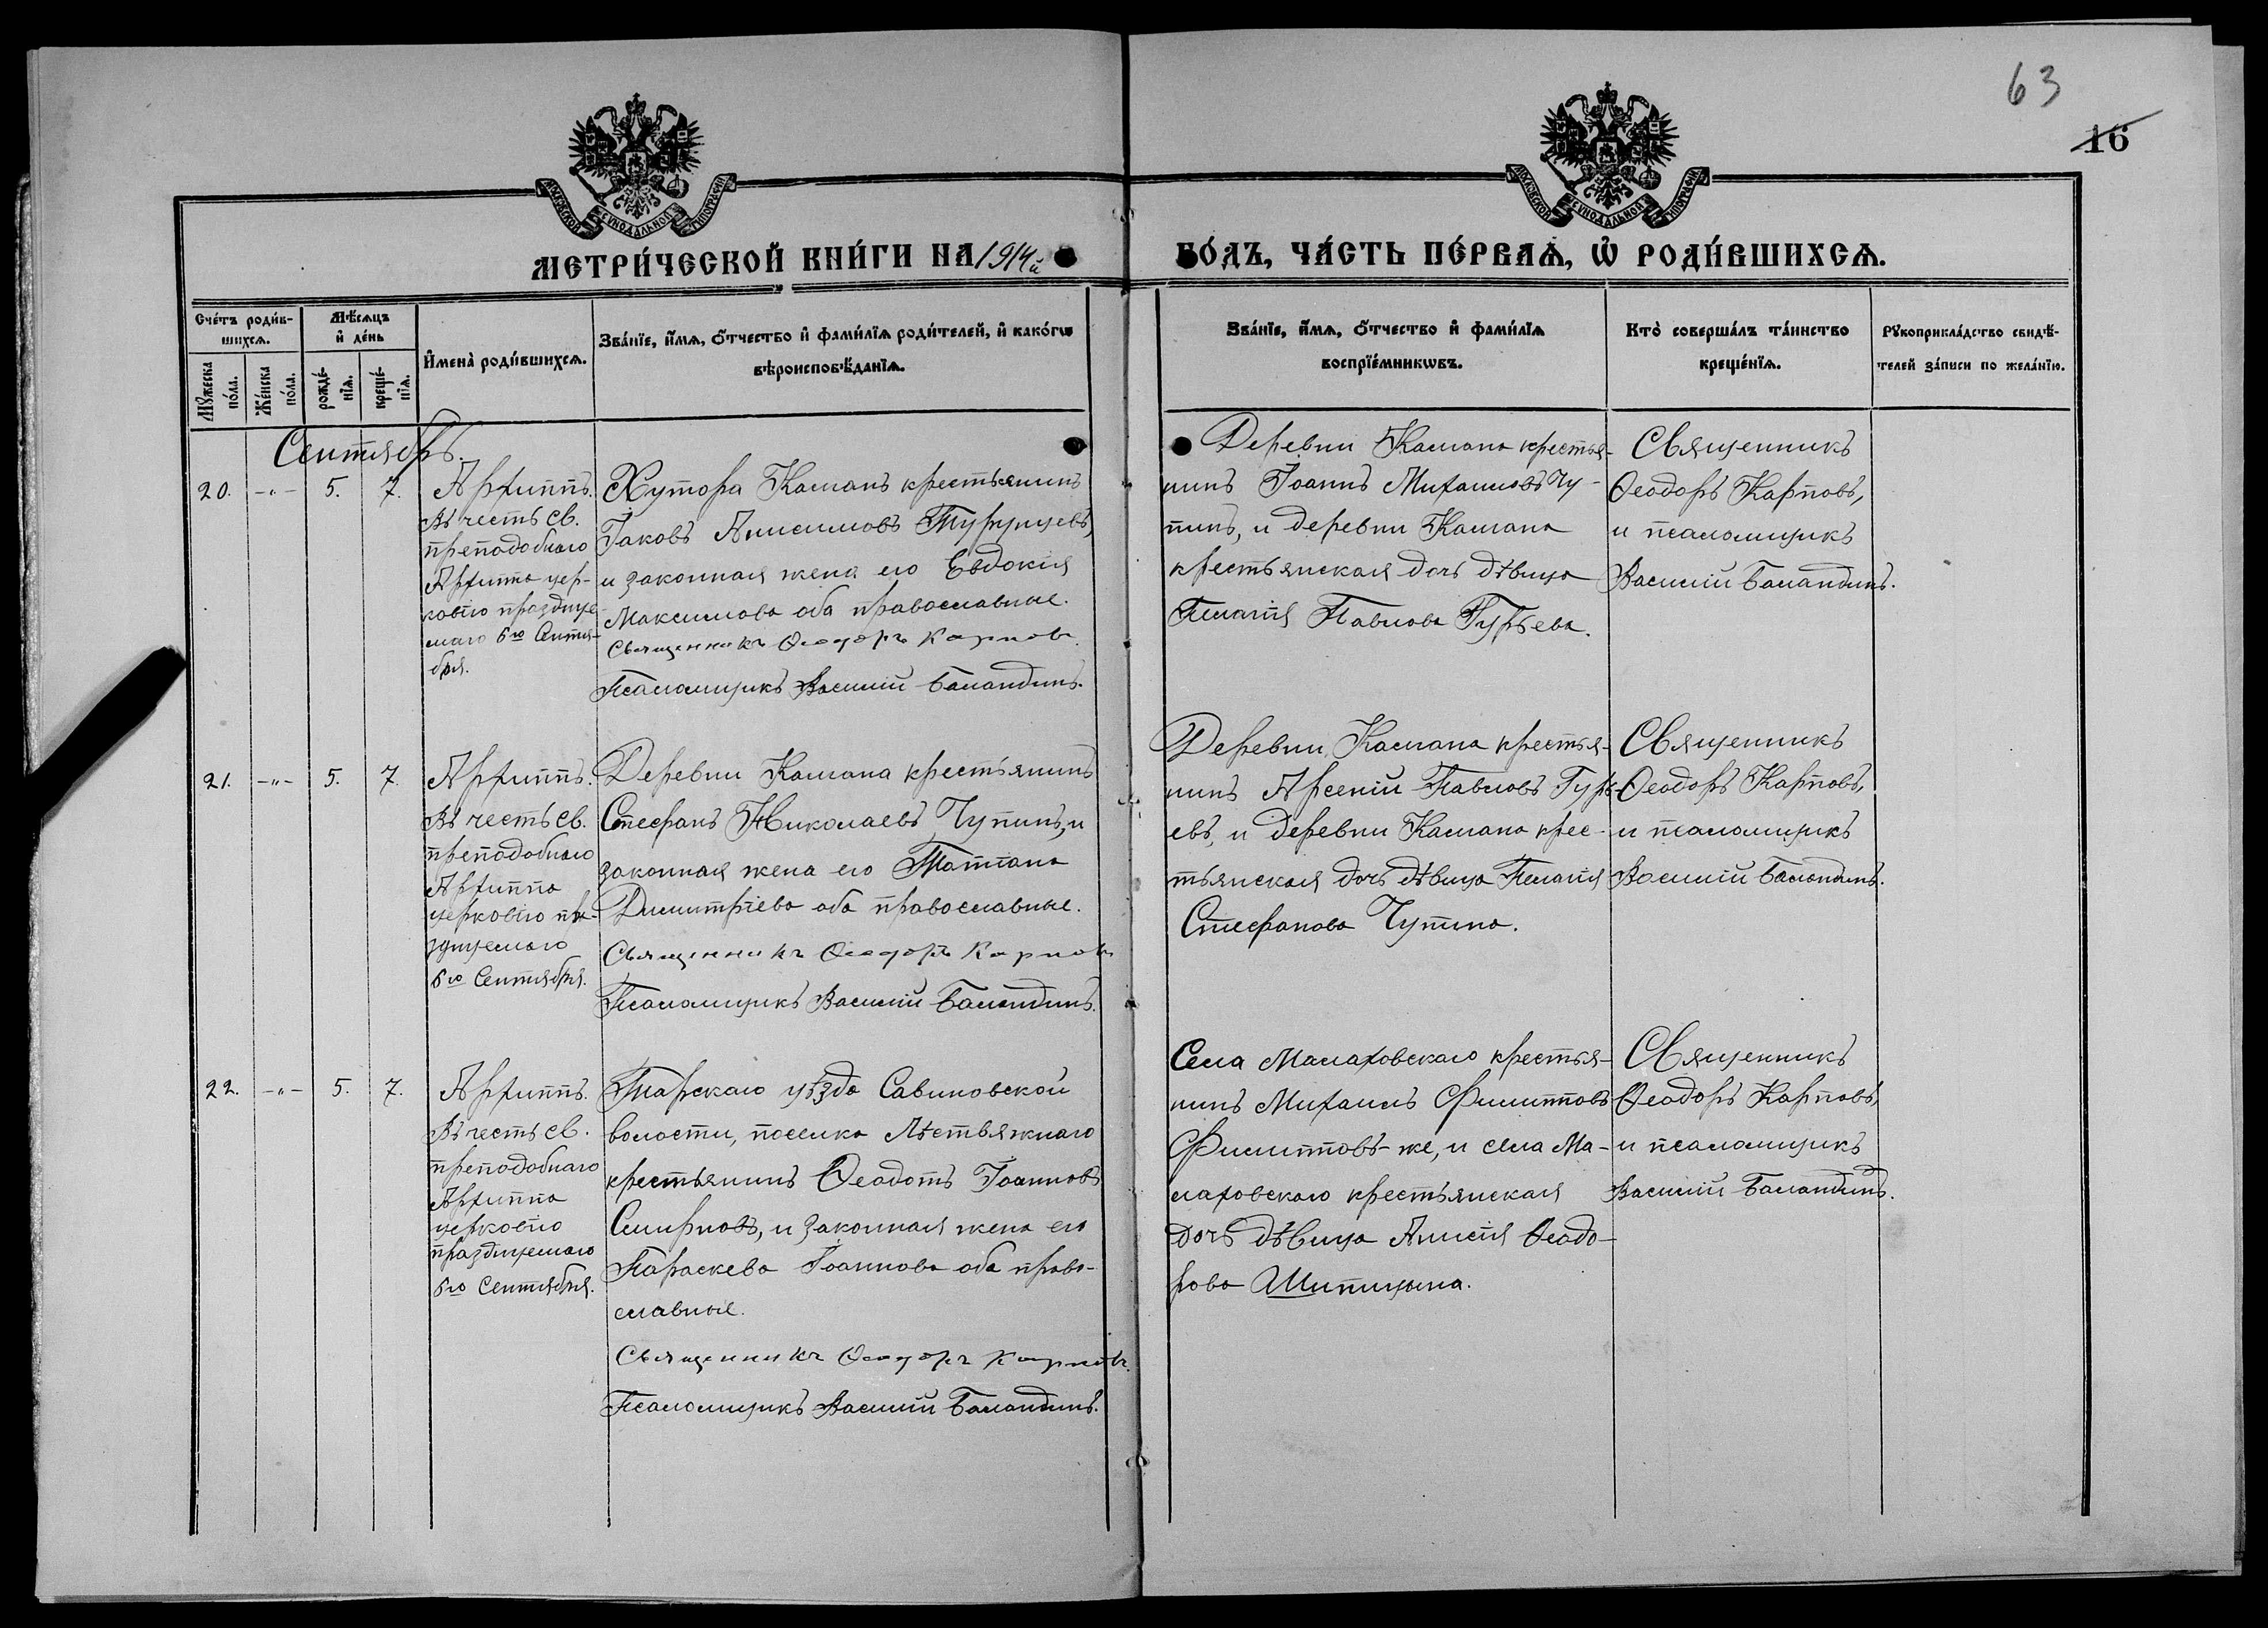 63
16
МОСКОВСКОЙ СѴНОДАЛЬНОЙ ТИПОГРАФІИ
МОСКОВСКОЙ СѴНОДАЛЬНОЙ ТИПОГРАФІИ
МЕТРИ́ЧЕСКОЙ КНИ́ГИ НА 1914й
ГО́ДЪ, ЧА́СТЬ ПЕ́РВАѦ, Ѡ҆ РОДИ́ВШИХСѦ.
Сче́тъ роди́в-
шихсѧ.
Мꙋ́жеска по́ла.
Же́нска по́ла.
Мѣ́сѧцъ
и҆ де́нь
рожде́-
нїѧ.
креще́-
нїѧ.
И҆мена̀ роди́вшихсѧ.
Зва́нїе, и҆́мѧ, ѻ҆́тчество и҆ фами́лїѧ роди́телей, и҆ како́гѡ
вѣроисповѣ́данїѧ.
Зва́нїе, и҆́мѧ, ѻ҆́тчество и҆ фами́лїѧ
воспрїе́мникѡвъ.
Кто̀ соверша́лъ та́инство
креще́нїѧ.
Рꙋкоприкла́дство свидѣ́-
телей за́писи по жела́нїю.
Сентябрь.
20.
-"-
5.
7.
Архиппъ.
Въ честь св.
преподобнаго
Архиппа цер-
ковію праздуе-
маго 6го Сентя-
бря.
Хутора Каманъ крестьянинъ
Іаковъ Анисимовъ
и законная жена его Евдокія
Максимова оба православные.
Священникъ Ѳеодоръ Карповъ
Псаломщикъ Василій Баландинъ.
Деревни Камана крестья-
нинъ Іоаннъ Михаиловъ Чу-
пинъ, и деревни Камана
крестьянская дочь дѣвица
Пелагія Павлова Гурьева.
Священникъ
Ѳеодоръ Карповъ,
и псаломщикъ
Василій Баландинъ.
21.
-"-
5.
7.
Архиппъ.
Въ честь св.
преподобнаго
Архиппа
церковію пра-
зднуемаго
6го Сентября.
Деревни Камана крестьянинъ
Стефанъ Николаевъ Чупинъ, и
законная жена его Татіана
Димитріева оба православные.
Священникъ Ѳеодоръ Карповъ
Псаломщикъ Василій Баландинъ.
Деревни Камана крестья-
нинъ Арсеній Павловъ Гурь-
евъ, и деревни Камана крес-
тьянская дочь дѣвица Пелагія
Стефанова Чупина.
Священникъ
Ѳеодоръ Карповъ,
и псаломщикъ
Василій Баландинъ.
22.
-"-
5.
7.
Архиппъ.
Въ честь св.
преподобнаго
Архиппа
церковію
празднуемаго
6го Сентября.
Тарскаго уѣзда Савиновской
волости, поселка Лѣствяжнаго
крестьянинъ Ѳеодотъ Іоанновъ
Смирновъ, и законная жена его
Параскева Іоаннова оба право-
славные.
Священникъ Ѳеодоръ Карповъ.
Псаломщикъ Василій Баландинъ.
Села Малаховскаго крестья-
нинъ Михаилъ Филипповъ
Филипповъ-же, и села Ма-
лаховскаго крестьянская
дочь дѣвица Анисія Ѳеодо-
рова Шипицына.
Священникъ
Ѳеодоръ Карповъ,
и псаломщикъ
Василій Баландинъ.